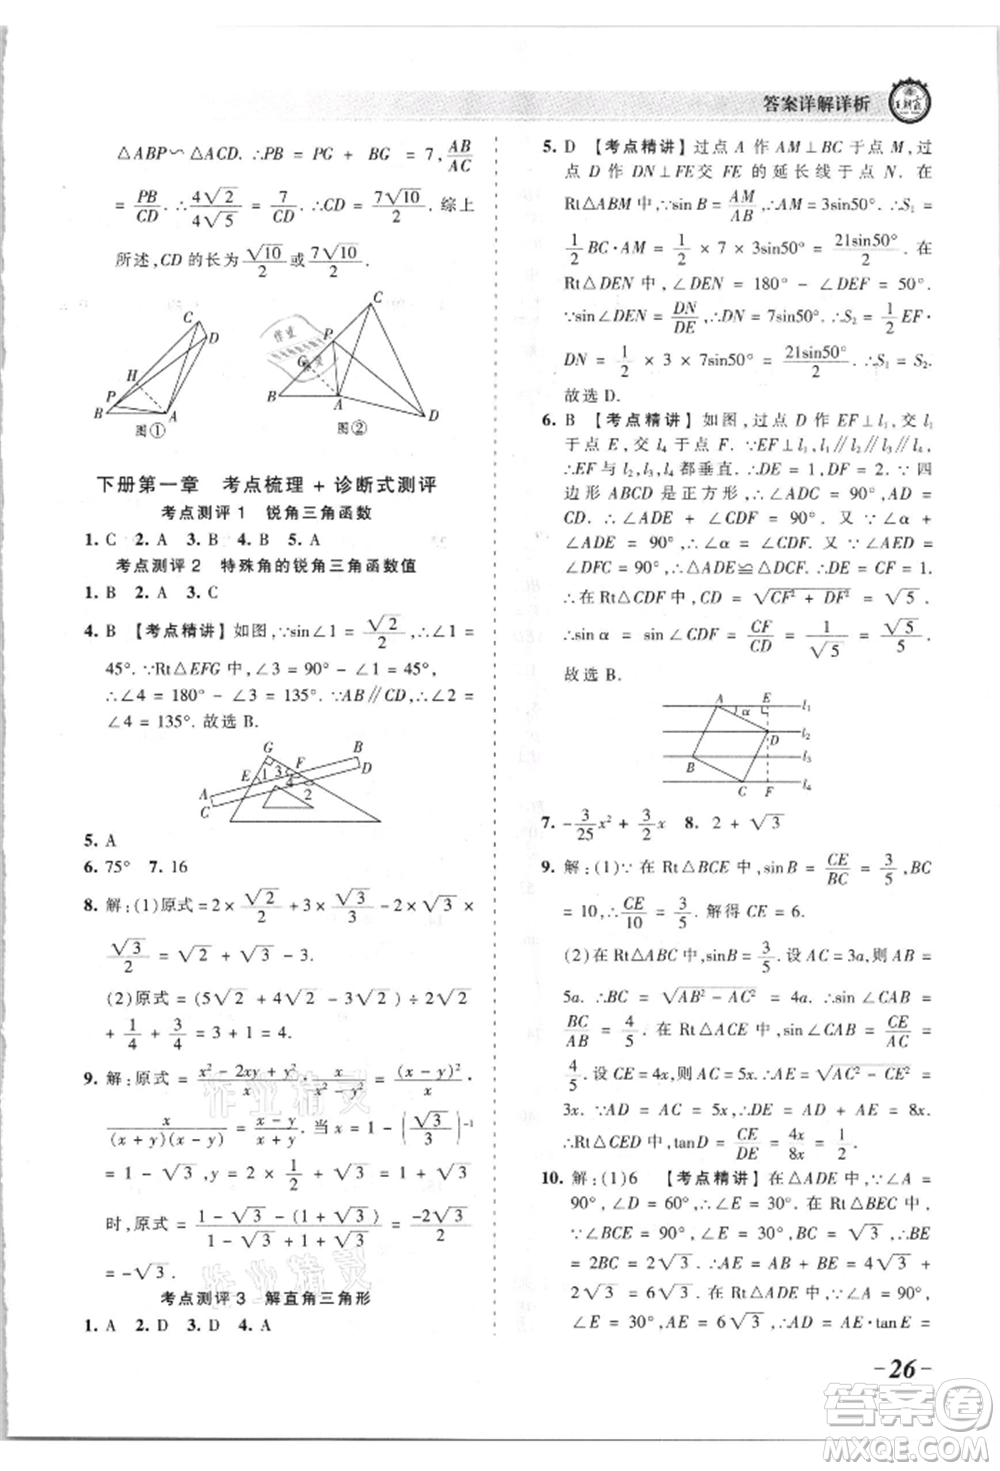 答案详解详析
王朝霞
△ABP∽△ACD. ∴PB = PG + BG = 7, AB/AC
= PB/CD. ∴ 4√2/4√5 = 7/CD. ∴CD = 7√10/2. 综上
所述, CD 的长为 √10/2 或 7√10/2.
C D H P B A
图①
C P G B A D
图②
下册第一章 考点梳理 + 诊断式测评
考点测评 1 锐角三角函数
1. C 2. A 3. B 4. B 5. A
考点测评 2 特殊角的锐角三角函数值
1. B 2. A 3. C
4. B 【考点精讲】如图, ∵sin∠1 = √2/2, ∴∠1 =
45°. ∵Rt△EFG 中, ∠3 = 90° − ∠1 = 45°,
∴∠4 = 180° − ∠3 = 135°. ∵AB∥CD, ∴∠2 =
∠4 = 135°. 故选 B.
G B E 1 3 F D 4 A 2 C
5. A
6. 75° 7. 16
8. 解:(1)原式 = 2 × √2/2 + 3 × √3/3 − 2×√3 ×
√3/2 = √2 + √3 − 3.
(2)原式 = (5√2 + 4√2 − 3√2) ÷ 6√2
+ 1/4 + 3/4 = 1 + 1 = 2.
9. 解:原式 = (x² − 2xy + y²)/x ÷ (x² − y²)/x = (x − y)²/x ·
x/((x + y)(x − y)) = (x − y)/(x + y). 当 x = 1 − (√3/3)⁻¹
= 1 − √3, y = 2 × 1/2 + √3 = 1 + √3
时, 原式 = (1 − √3 − (1 + √3))/(1 − √3 + 1 + √3) = −2√3/2
= −√3.
考点测评 3 解直角三角形
1. A 2. D 3. D 4. A
5. D 【考点精讲】过点 A 作 AM⊥BC 于点 M, 过
点 D 作 DN⊥FE交 FE 的延长线于点 N. 在
Rt△ABM 中, ∵sin B = AM/AB, ∴AM = 3sin50°. ∴S₁ =
1/2 BC·AM = 1/2 × 7 × 3sin50° = 21sin50°/2. 在
Rt△DEN 中, ∠DEN = 180° − ∠DEF = 50°.
∵sin∠DEN = DN/DE, ∴DN = 7sin50°. ∴S₂ = 1/2 EF·
DN = 1/2 × 3 × 7sin50° = 21sin50°/2. ∴S₁ = S₂.
故选 D.
6. B 【考点精讲】如图, 过点 D 作 EF⊥l₁, 交 l₁
于点 E, 交 l₄ 于点 F. ∵EF⊥l₁, l₁∥l₂∥l₃∥l₄,
∴EF 与 l₂, l₃, l₄ 都垂直. ∴∠DFC = 90°. ∵ 四
边形 ABCD 是正方形, ∴∠ADC = 90°. ∴∠α +
∠CDF = 90°. 又∵∠α +
∠DFC = 90°, ∴△ADE≌△DCF. ∴DF = CF = 1.
∴在 Rt△CDF 中, CD = √(CF² + DF²) = √5.
∴sin α = sin∠CDF = CF/CD = 1/√5 = √5/5.
故选 B.
A E α l₁ l₂ D B l₃ C F l₄
7. −3/25 x² + 3/2 x 8. 2 + √3
9. 解:(1)∵在 Rt△BCE 中, sin B = CE/BC = 3/5, BC
= 10, ∴CE/10 = 3/5. 解得 CE = 6.
(2)在 Rt△ABC 中, sinB = 3/5. 设 AC = 3a, 则 AB =
5a. ∴BC = √(AB² − AC²) = 4a. ∴sin∠CAB =
BC/AB = 4/5. 在 Rt△ACE 中, sin∠CAB = CE/AC =
4/5. 设 CE = 4x, 则 AC = 5x. ∴AE = √(AC² − CE²) =
3x. ∵AD = AC = 5x, ∴DE = AD + AE = 8x.
∴Rt△CED 中, tanD = CE/DE = 4x/8x = 1/2.
10. 解:(1)6 【考点精讲】在△ADE 中, ∵∠A =
90°, ∠D = 60°, ∴∠E = 30°. 在 Rt△BEC 中,
∵∠BCE = 90°, ∠E = 30°, BC = √3, ∴BE
= 2BC = 2√3. ∴AE = AB + BE = 4√3 +
2√3 = 6√3. 在 Rt△ADE 中, ∵∠A = 90°,
∠E = 30°, AE = 6√3, ∴AD = AE·tan E =
-26-
作业精灵
作业精灵
答案卷
MXQE.COM